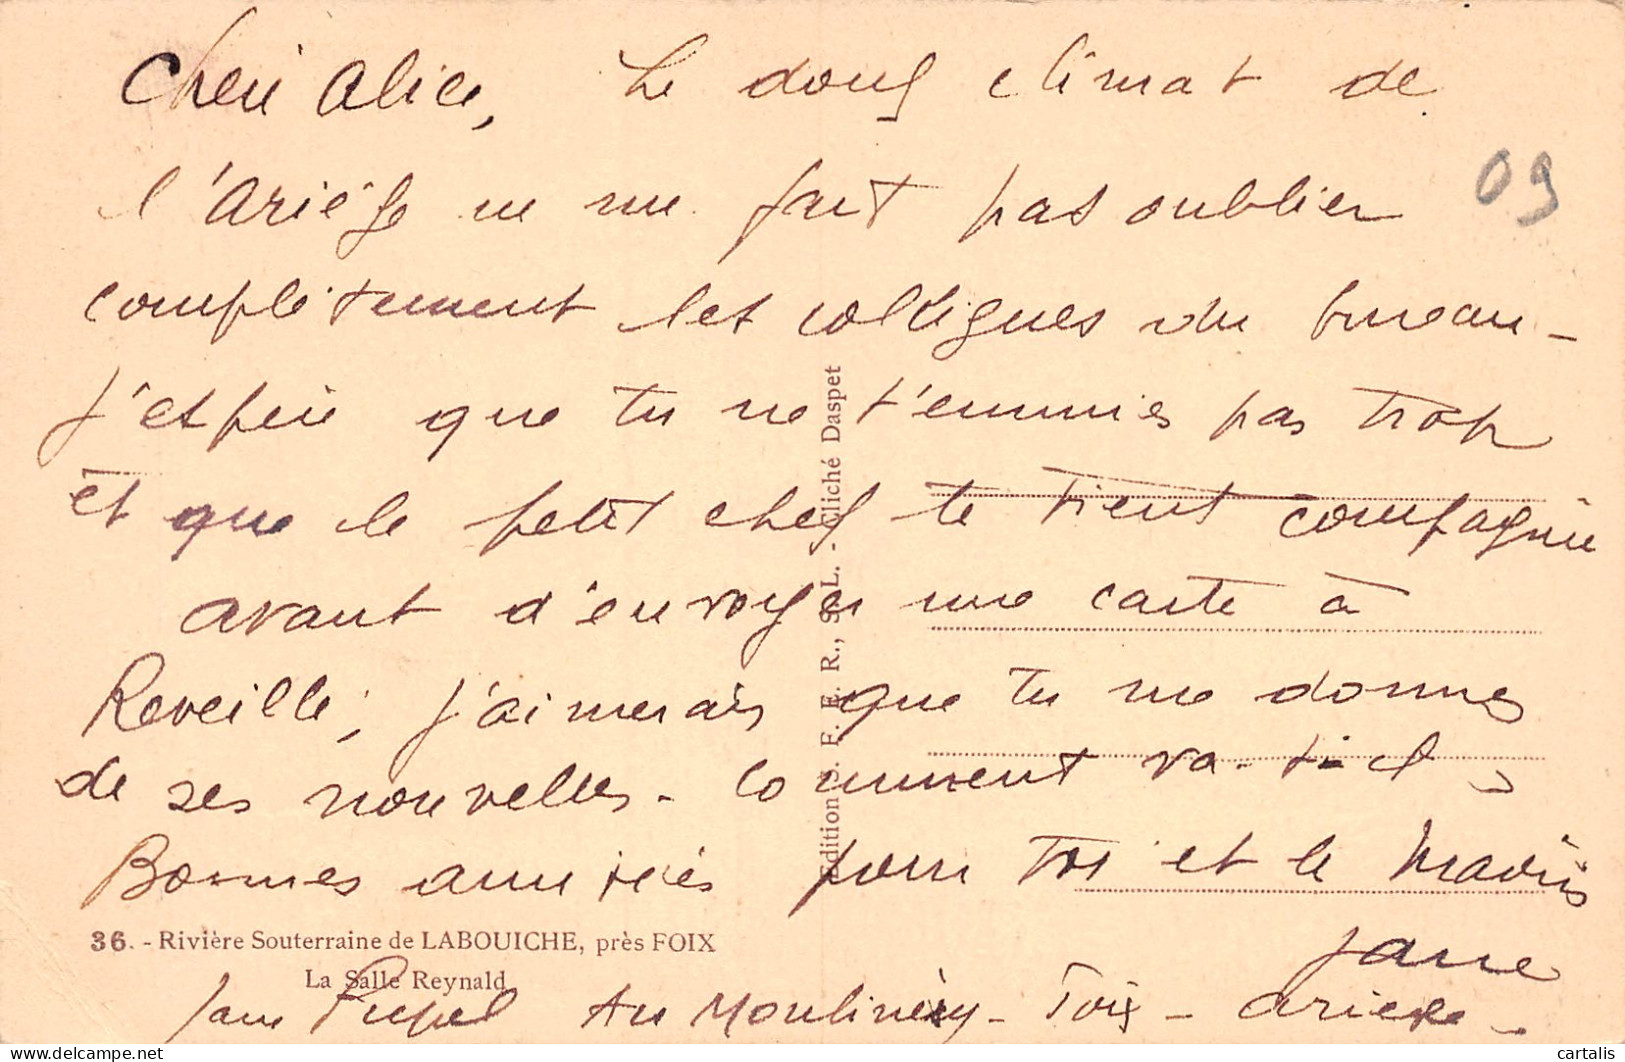 Cheri Alice, Le doux climat de
l'Ariège ne me fait pas oublier
complètement les collègues du bureau -
J'espère que tu ne t'ennuies pas trop
et que le petit chef te tient compagnie
avant d'envoyer une carte à
Reveille, j'aimerais que tu me donnes
de ses nouvelles - Comment va-t-il
Bonnes amitiés pour toi et le
Jane
36. - Rivière Souterraine de LABOUICHE, près FOIX
La Salle Reynald
Au Moulinéry - Foix - Ariège -
Edition S. F. E. R., S. L. - Cliché Daspet
09
cartalis